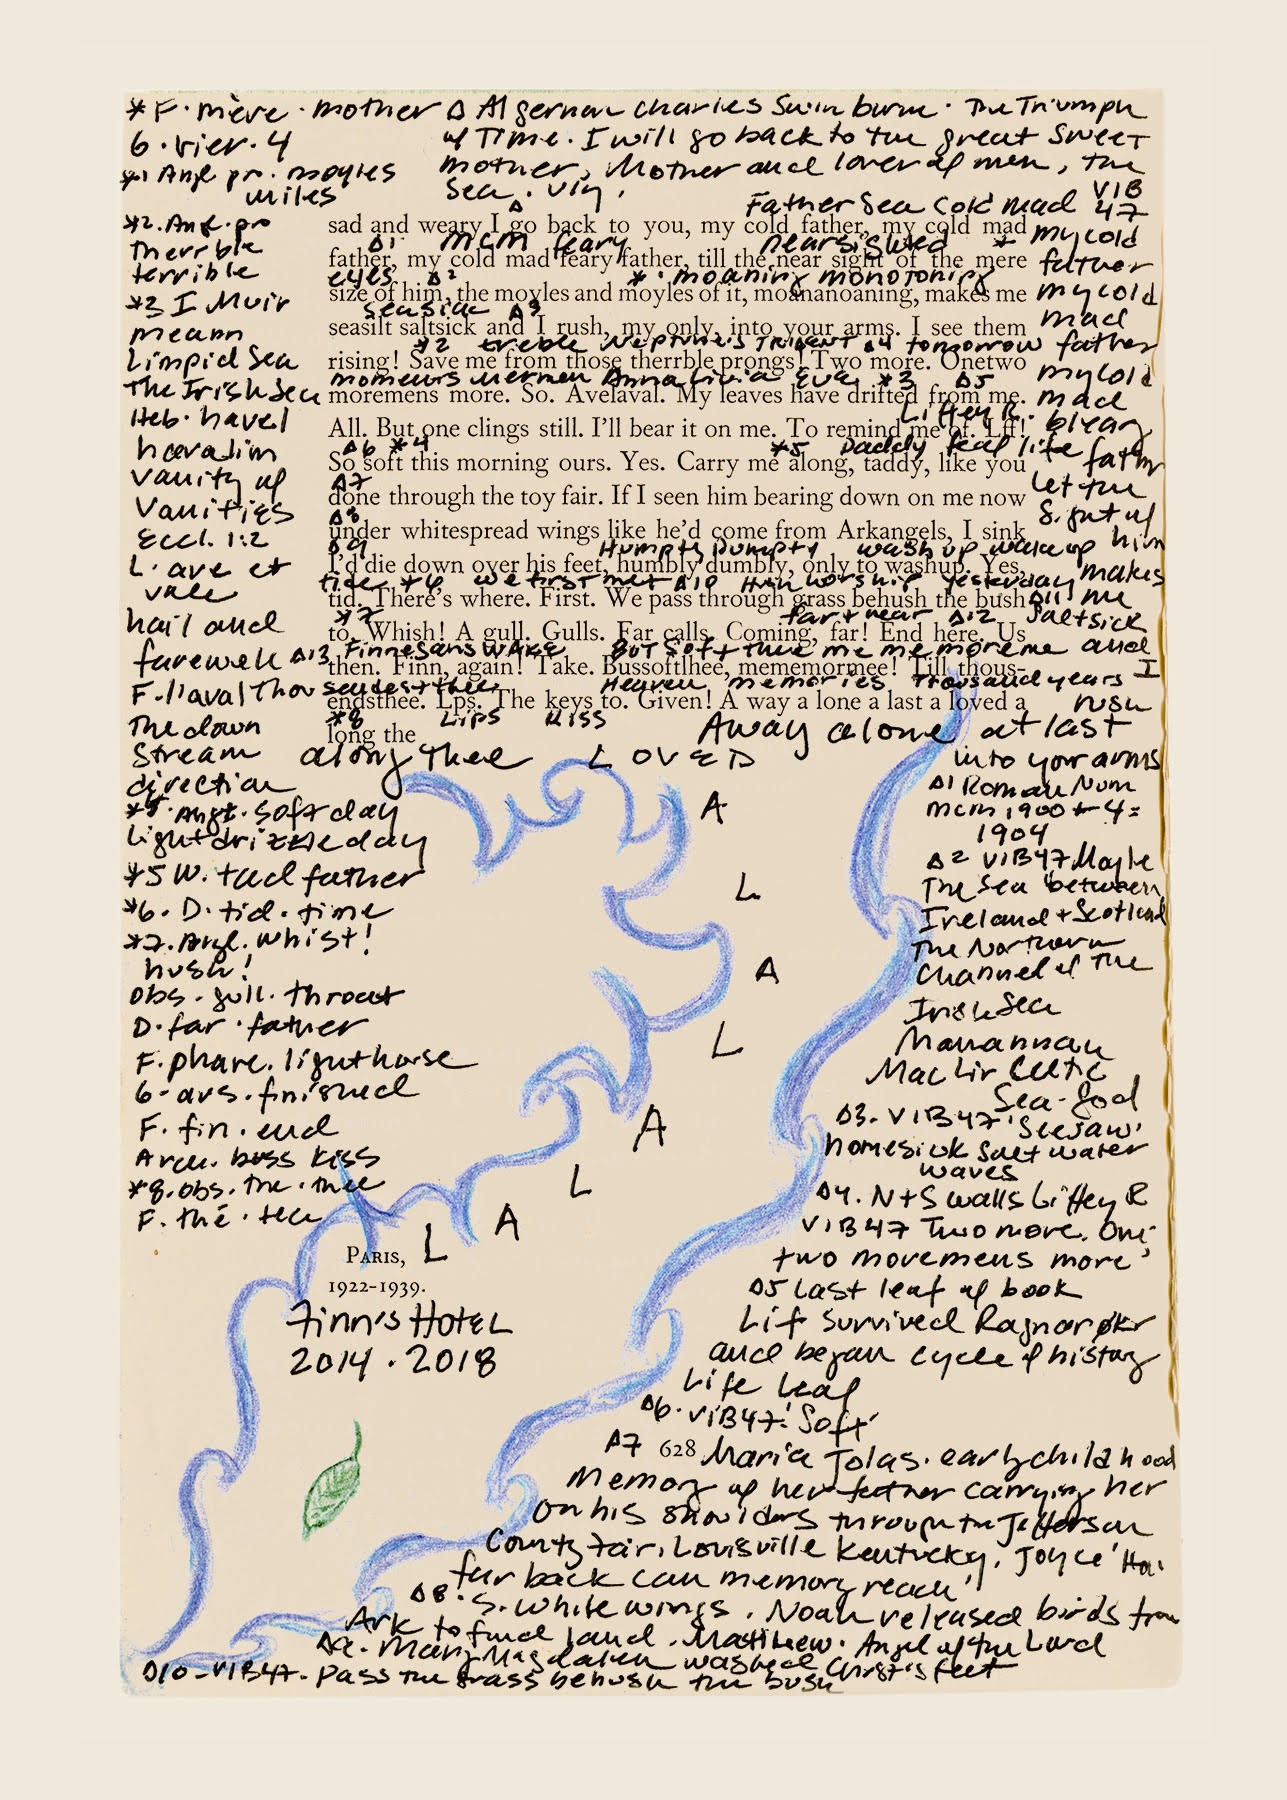 * F. mère. mother Δ Algernon Charles Swinburne. The Triumph
6. vier. 4 of Time. I will go back to the great sweet
*1 Angl pr. moyles mother, Mother and lover of men, the
miles sea. VIB
Father Sea Cold Mad VIB 47
sad and weary I go back to you, my cold father, my cold mad
Δ1 mcm feary nearsighted *
father, my cold mad feary father, till the near sight of the mere
eyes Δ2 * moaning monotoning
size of him, the moyles and moyles of it, moananoaning, makes me
seasick Δ3
seasilt saltsick and I rush, my only, into your arms. I see them
*2 treble Neptune's Trident Δ4 tomorrow
rising! Save me from those therrble prongs! Two more. Onetwo
moments mermen Anna Livia Eve *3 Δ5
moremens more. So. Avelaval. My leaves have drifted from me.
Liffey R.
All. But one clings still. I'll bear it on me. To remind me of. Lff!
Δ6 *4 *5 Daddy leaf life
So soft this morning ours. Yes. Carry me along, taddy, like you
Δ7
done through the toy fair. If I seen him bearing down on me now
Δ8
under whitespread wings like he'd come from Arkangels, I sink
Δ9 Humpty Dumpty wash up wake up
I'd die down over his feet, humbly dumbly, only to washup. Yes,
tide *6 we first met Δ10 Hush worship yesterday
tid. There's where. First. We pass through grass behush the bush
*7 far + near Δ11 Δ12
to. Whish! A gull. Gulls. Far calls. Coming, far! End here. Us
Δ13 Finnegans Wake But soft thee me me more me
then. Finn, again! Take. Bussoftlhee, mememormee! Till thous-
sendest thee Heaven memories Thousand years
endsthee. Lps. The keys to. Given! A way a lone a last a loved a
*8 Lips Kiss Away alone at last
long the
along thee LOVED
*2. Angl. pr
therrble
terrible
*3 I Muir
meann
Limpid Sea
The Irish Sea
Heb. havel
havalim
vanity of
Vanities
Eccl. 1:2
L. ave et
vale
hail and
farewell
F. l'aval
The down
stream
direction
*4. Angl. soft day
light drizzle day
*5 W. tad father
*6. D. tid. time
*7. Angl. whist!
hush!
obs. gull. throat
D. far. father
F. phare. lighthouse
6. avs. finished
F. fin. end
Arch. buss kiss
*8. obs. the. thee
F. thé. tea
my cold
father
my cold
mad
father
my cold
mad
bleary
father
let the
sight of
him
makes
me
saltsick
and
I
rush
into your arms
Δ1 Roman Num
mcm 1900 + 4 =
1904
Δ2 VIB47 Moyle
The Sea between
Ireland + Scotland
The Northern
Channel of the
Irish Sea
Manannan
MacLir Celtic
Sea-God
Δ3. VIB47 'Seesaw'
homesick salt water
waves
Δ4. N+S walls Liffey R
VIB47 Two more. One
two movemens more'
Δ5 Last leaf of book
Lif survived Ragnarøkr
and began cycle of history
Life Leaf
Δ6. VIB47: 'Soft'
A
L
A
L
A
L
A
L
Paris,
1922–1939.
Finn's Hotel
2014 . 2018
628
Δ7 Maria Jolas. early childhood
Memory of her father carrying her
on his shoulders through the Jefferson
County Fair, Louisville Kentucky. Joyce 'How
far back can memory reach'
Δ8. S. White wings. Noah released birds from
Ark to find land. Matthew. Angel of the Lord
Δ9. Mary Magdalen washed Christ's feet
Δ10 - VIB47. Pass the grass behush the bush